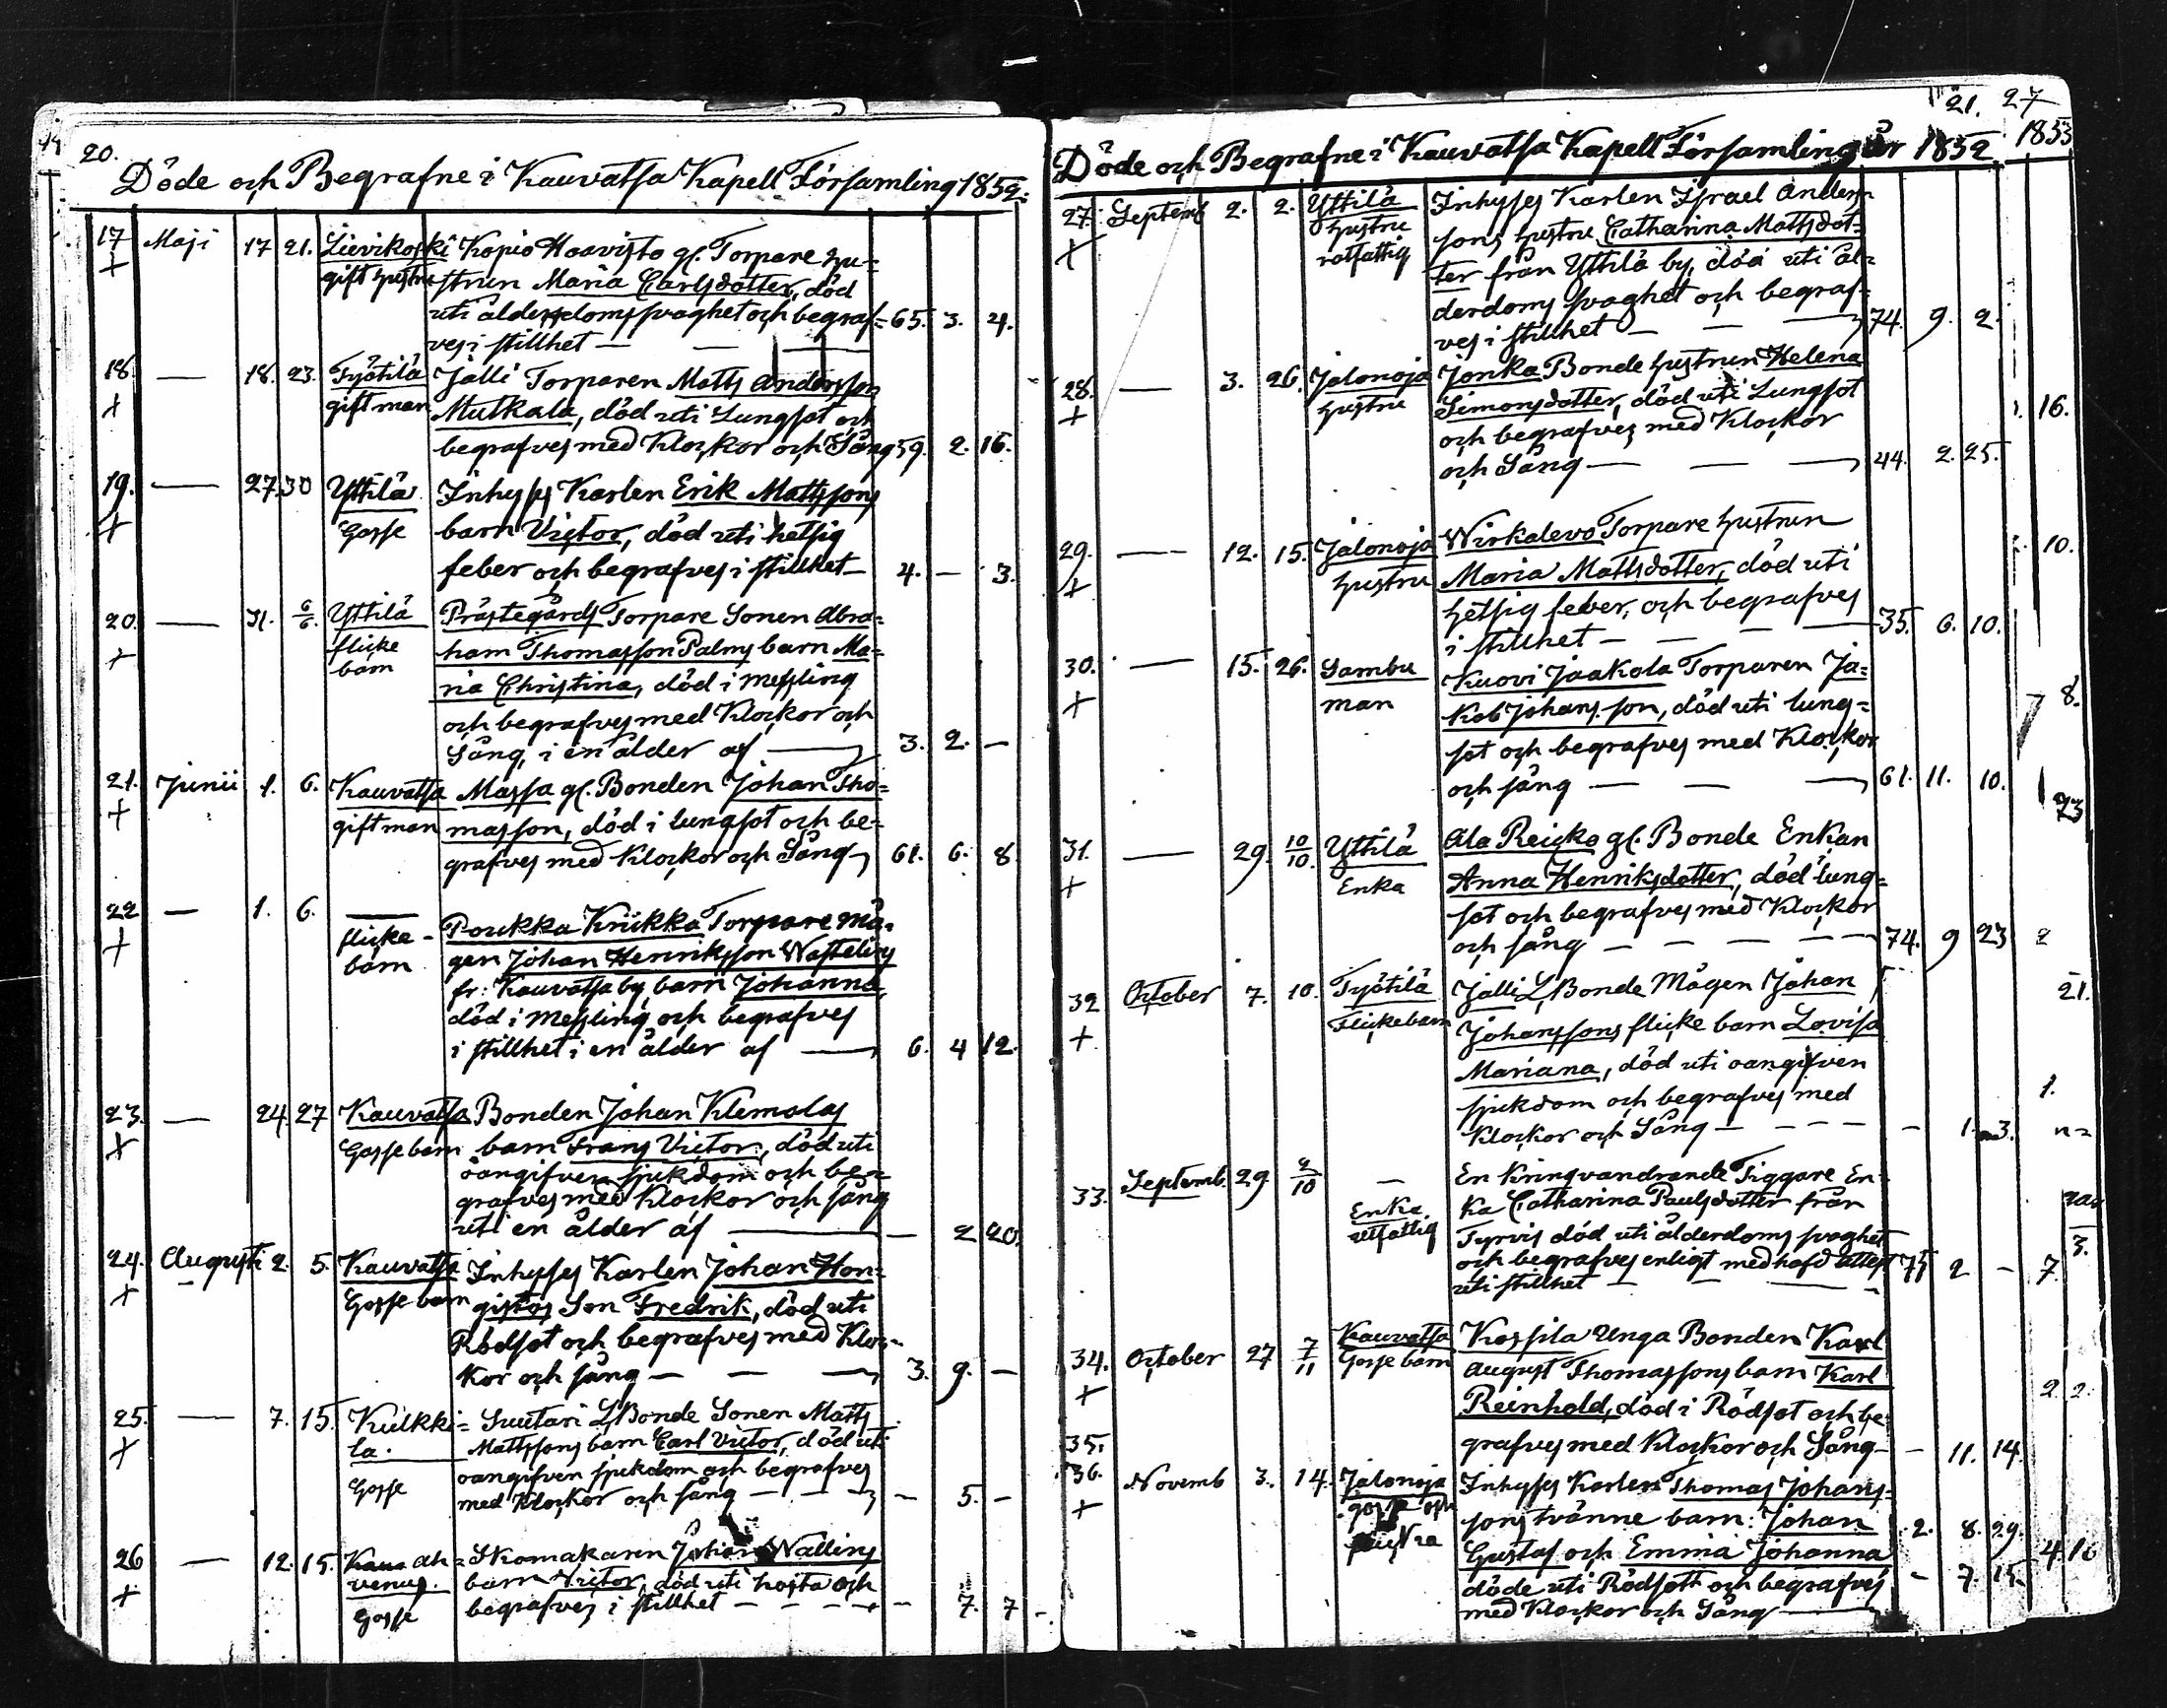 20.
Döde och Begrafne i Kauvatsa Kapell Församling 1852.
17 Maji 17 21. Lievikoski Kopio Haavisto gl. Torpare hu=
+ gift hustru strun Maria Carlsdotter, död
uti ålderdomssvaghet och begraf= 65. 3. 4.
ves i stillhet — — —
18. — 18. 23. Työtilä Jalli Torparen Matts Andersson
+ gift man Mutkala, död uti Lungsot och
begrafves med Klockor och Sång 59. 2. 16.
19. — 27 30 Yttilä Inhyses Karlen Erik Mattssons
+ Gosse barn Victor, död uti hetsig
feber och begrafves i stillhet — 4. — 3.
20. — 31. 6/6. Yttilä Prästegårds Torpare Sonen Abra=
+ flicke ham Thomasson Palms barn Ma=
barn ria Christina, död i Messling
och begrafves med Klockor och
Sång, i en ålder af — 3. 2. —
21. Junii 1. 6. Kauvatsa Massa gl. Bonden Johan Tho=
+ gift man masson, död i lungsot och be=
grafves med Klockor och Sång 61. 6. 8
22 — 1. 6. — Poukka Kriikka Torpare Må=
+ flicke- gen Johan Henriksson Wastelins
barn fr: Kauvatsa by, barn Johanna,
död i Messling och begrafves
i stillhet i en ålder af — 6. 4 12.
23. — 24. 27 Kauvatsa Bonden Johan Klemolas
+ Gosse barn barn Frans Victor, död uti
oangifven sjukdom och be=
grafves med Klockor och sång
uti en ålder af — — 2 20.
24. Augusti 2. 5. Kauvatsa Inhyses Karlen Johan Hon=
+ Gosse barn gistos Son Fredrik, död uti
Rödsot och begrafves med Kloc=
kor och sång — — — 3. 9. —
25. — 7. 15. Kulkki= Suutari L. Bonde Sonen Matts
+ la. Mattssons barn Carl Victor, död uti
Gosse oangifven sjukdom och begrafves
med Klockor och sång — — — 5. —
26 — 12. 15. ah= Skomakaren Johan Wallins
+ venus. barn Victor, död uti hosta och
Gosse begrafves i stillhet — — — — 7. 7
21. 27
Döde och Begrafne i Kauvatsa Kapell Församling år 1852. 1853
27. Septemb 2. 2. Yttilä Inhyses Karlen Israel Anders=
+ hustru sons hustru Catharina Mattsdot=
utfattig ter från Yttilä by, död uti ål=
derdoms svaghet och begraf=
ves i stillhet — — — 74. 9. 2.
28. — 3. 26. Jalonoja Jonka Bonde hustrun Helena
+ hustru Simonsdotter, död uti Lungsot
och begrafves med Klockor
och Sång — — — 44. 2. 25.
29. — 12. 15. Jalonoja Wirkalevo Torpare hustrun
+ hustru Maria Mattsdotter, död uti
hetsig feber, och begrafves
i stillhet — — — 35. 6. 10.
30. — 15. 26. Sambu Kuovi Jaakola Torparen Ja=
+ man kob Johansson, död uti lung=
sot och begrafves med Klockor
och sång — — — 61. 11. 10.
31. — 29. 10/10. Yttilä Ala Reicko gl. Bonde Enkan
+ Enka Anna Henriksdotter, död i lung=
sot och begrafves med Klockor
och sång — — — — 74. 9 23
32 October 7. 10. Työtilä Jalli L. Bonde Mågen Johan
+ Flickebarn Johanssons flicke barn Lovisa
Mariana, död uti oangifven
sjukdom och begrafves med
Klockor och Sång — — — — — 1. 3.
33. Septemb. 29. 2/10 — En kringvandrande Tiggare En=
Enka. ka Catharina Paulsdotter från
utfattig Tyrvis död uti ålderdoms svaghet
och begrafves enligt medhafd attest 75 2 —
uti stillhet — — —
34. October 27 7/11 Kauvatsa Kossila Unga Bonden Karl
+ Gosse barn August Thomassons barn Karl
Reinhold, död i Rödsot och be=
35. grafves med Klockor och Sång — — 11. 14.
36. Novemb 3. 14. Jalonoja Inhyses Karlen Thomas Johans=
+ sons tvänne barn: Johan
Gustaf och Emma Johanna 2. 8. 29.
döde uti Rödsott och begrafves — 7. 15.
med Klockor och Sång —
16.
10.
8.
23
2
21.
1.
3.
7.
2 2.
4 16